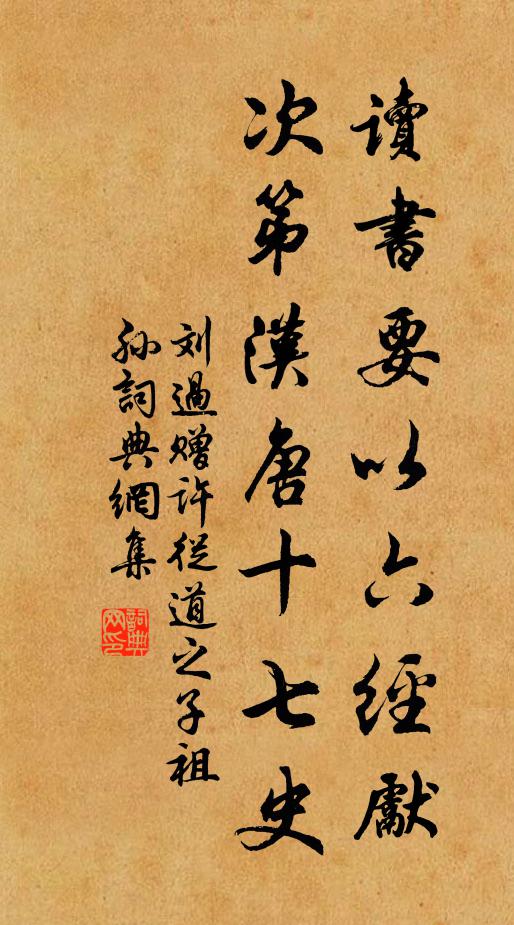 讀書要以六經獻
次第漢唐十七史
刘過贈許從道之子祖
孫詞典網集
詞典
网印